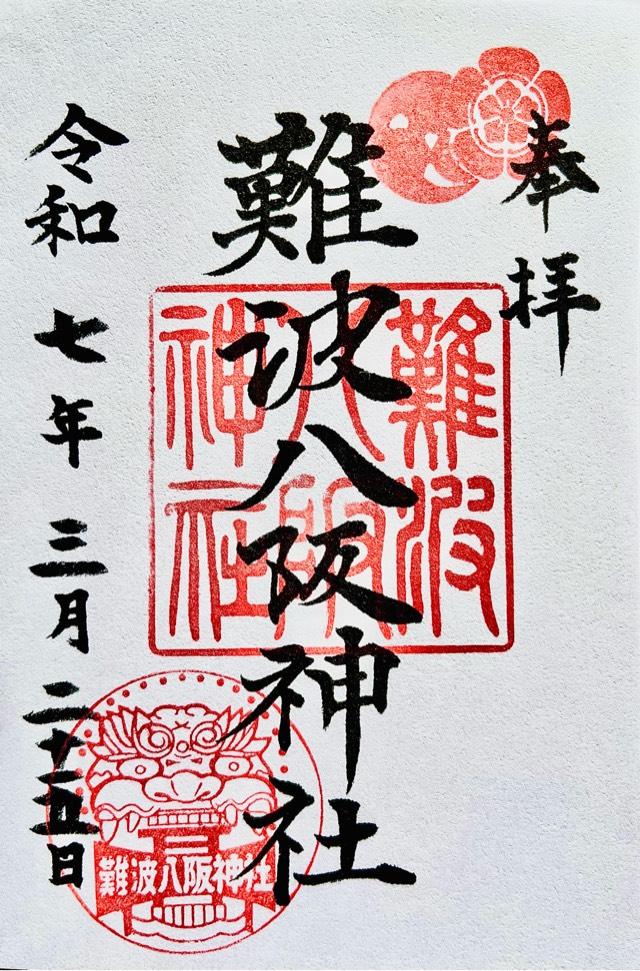 奉拝
難波八阪神社
難波八阪神社
令和七年三月二十五日
難波八阪神社